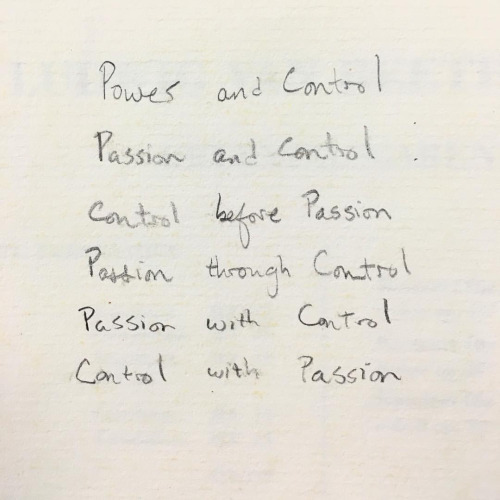 Power and Control
Passion and Control
Control before Passion
Passion through Control
Passion with Control
Control with Passion